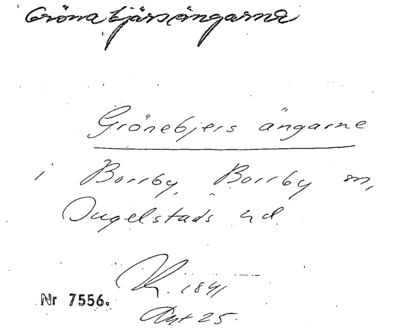 Gröna bjärsängarna
Grönebjers ängarne
i Borrby, Borrby m,
Ingelstads hd
1841
Nr 7556.
Akt 25.